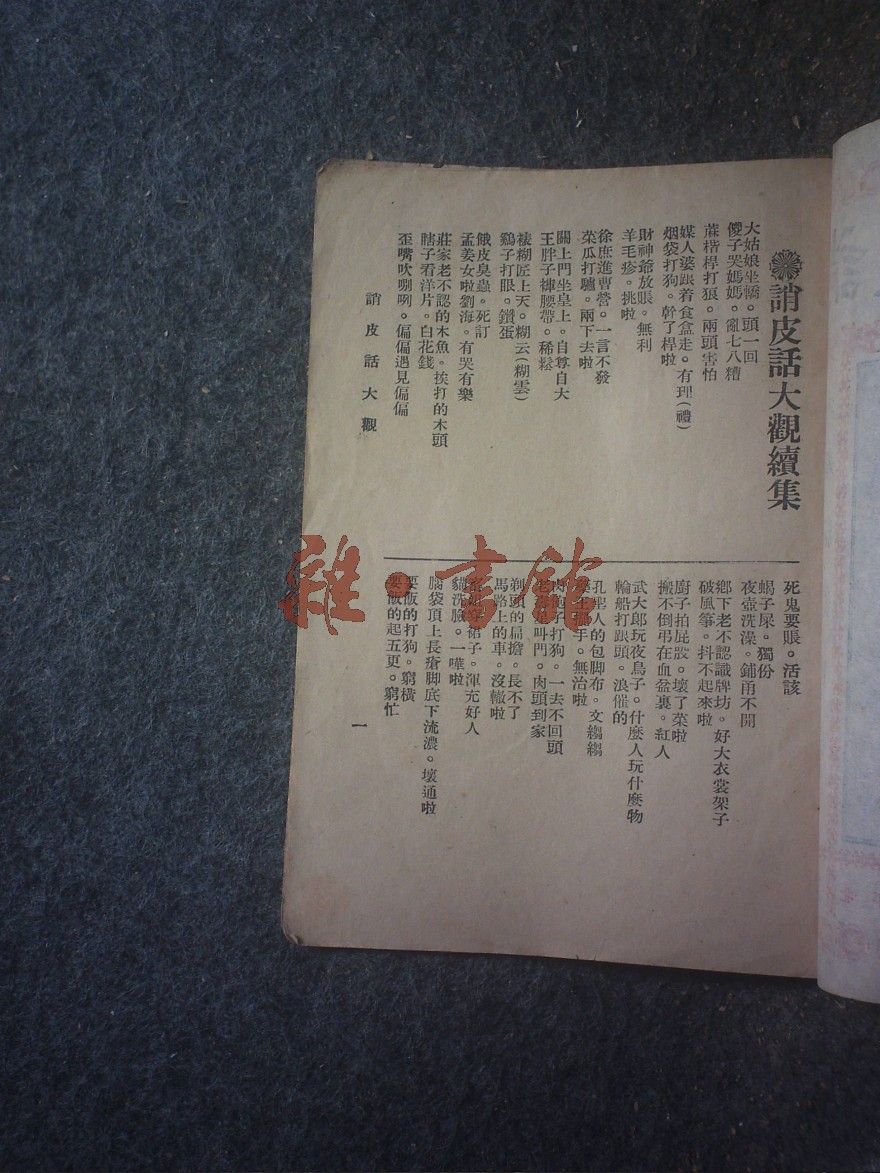 誚皮話大觀續集
大姑娘坐轎。頭一回
傻子哭媽媽。亂七八糟
蔴楷桿打狼。兩頭害怕
媒人婆跟着食盒走。有理(禮)
烟袋打狗。幹了桿啦
財神爺放賬。無利
羊毛疹。挑啦
徐庶進曹營。一言不發
菜瓜打驢。兩下去啦
關上門坐皇上。自尊自大
王胖子褲腰帶。稀鬆
裱糊匠上天。糊云(糊雲)
鷄子打眼。鑽蛋
餓皮臭蟲。死訂
孟姜女啦劉海。有哭有樂
莊家老不認的木魚。挨打的木頭
瞎子看洋片。白花錢
歪嘴吹喇咧。偏偏遇見偏偏
誚皮話大觀
死鬼要賬。活該
蝎子屎。獨份
夜壺洗澡。鋪甭不開
鄉下老不認識牌坊。好大衣裳架子
破風箏。抖不起來啦
廚子拍屁股。壞了菜啦
搬不倒弔在血盆裏。紅人
武大郎玩夜鳥子。什麼人玩什麼物
輪船打跟頭。浪催的
孔聖人的包脚布。文縐縐
手。無治啦
子打狗。一去不回頭
叫門。肉頭到家
剃頭的扁擔。長不了
馬路上的車。沒轍啦
裙子。渾充好人
貓洗臉。一嘩啦
腦袋頂上長瘡脚底下流濃。壞通啦
要飯的打狗。窮橫
要飯的起五更。窮忙
一
雜·書館